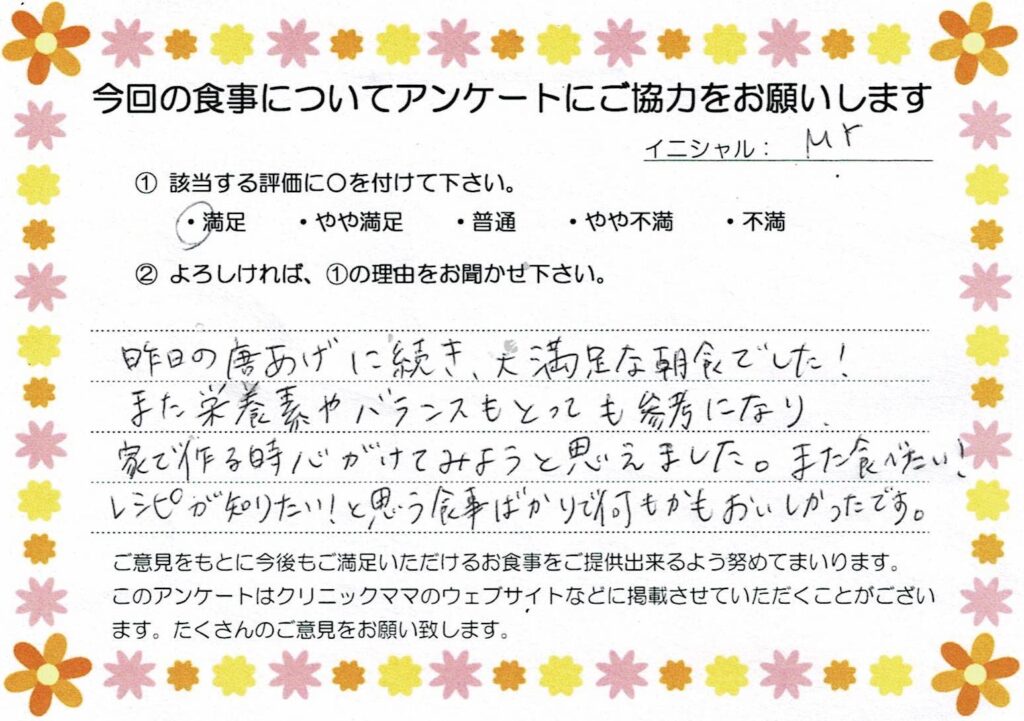 今回の食事についてアンケートにご協力をお願いします
イニシャル： Mr
① 該当する評価に〇を付けて下さい。
・満足 ・やや満足 ・普通 ・やや不満 ・不満
② よろしければ、①の理由をお聞かせ下さい。
昨日の唐あげに続き、大満足な朝食でした！
また栄養素やバランスもとっても参考になり、
家で作る時心がけてみようと思えました。また食べたい！
レシピが知りたい！と思う食事ばかりで何もかもおいしかったです。
ご意見をもとに今後もご満足いただけるお食事をご提供出来るよう努めてまいります。
このアンケートはクリニックママのウェブサイトなどに掲載させていただくことがござい
ます。たくさんのご意見をお願い致します。